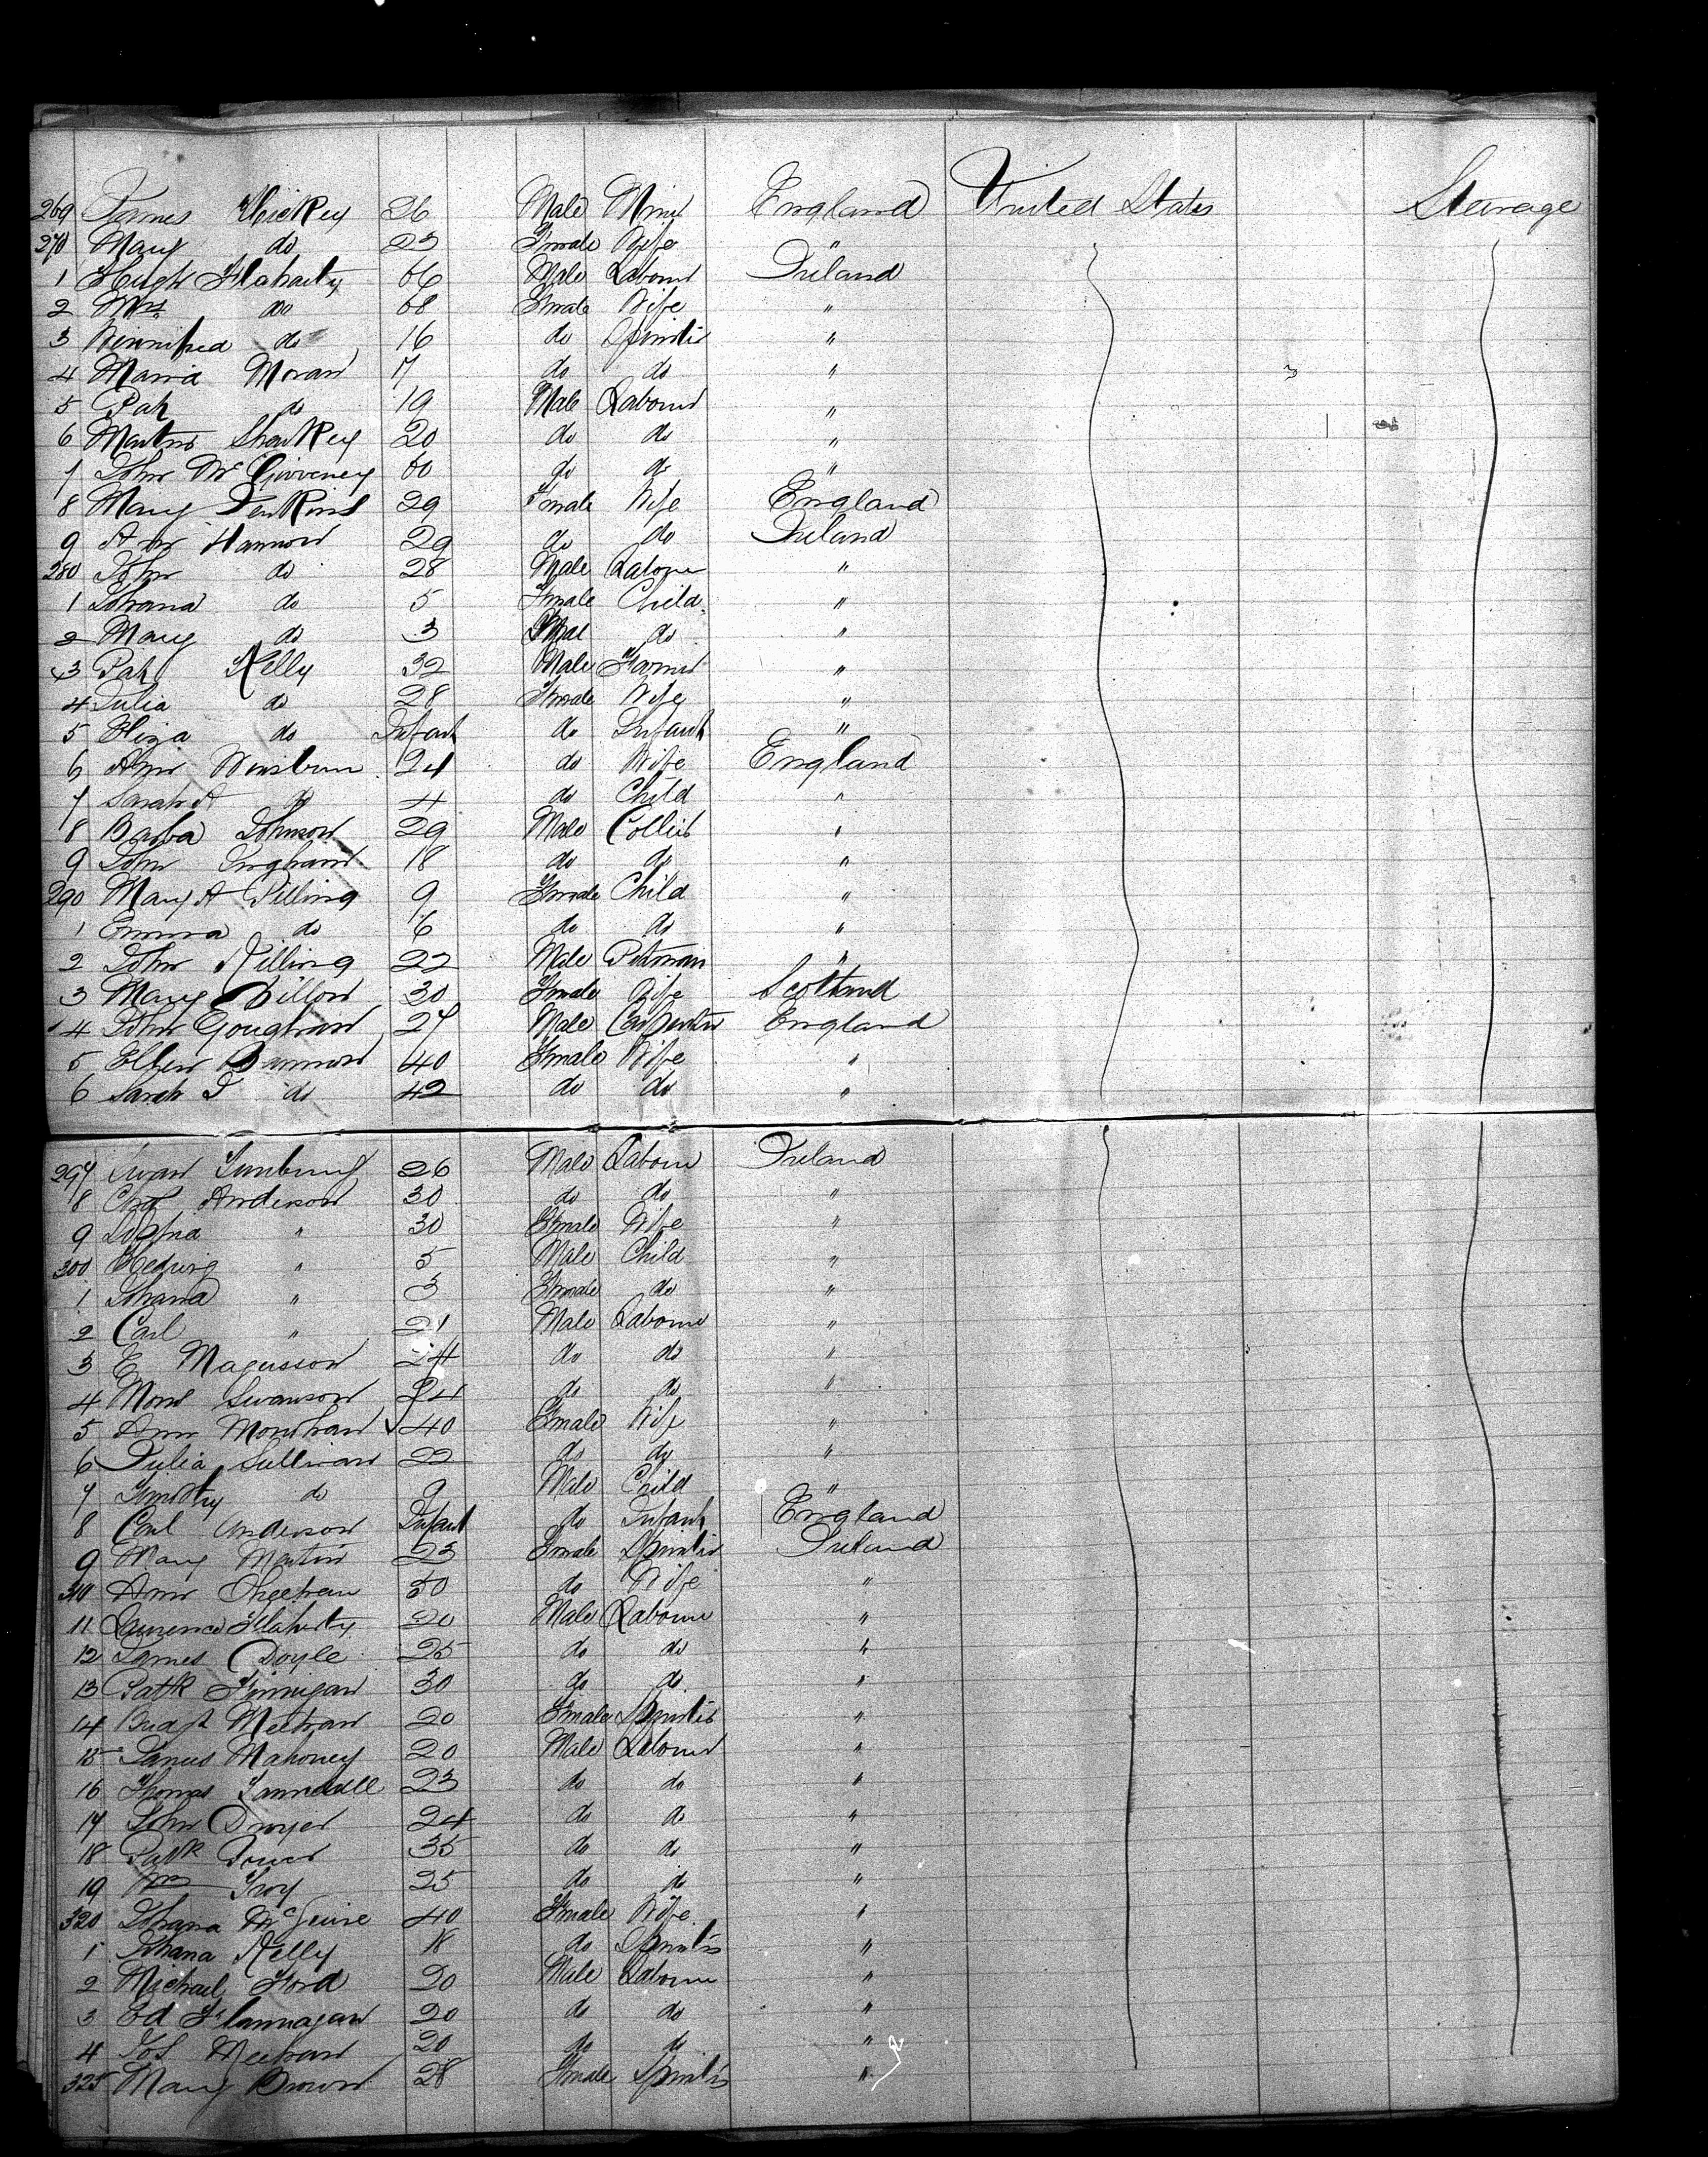 269 James Hickey 26 Male Miner England United States Steerage
270 Mary do 23 Female Wife "
1 Hugh Flaharty 66 Male Labourer Ireland
2 Mrs do 68 Female Wife "
3 Winnifred do 16 do Spinster "
4 Maria Moran 17 do do "
5 Pat do 19 Male Labourer "
6 Martin Sharkey 20 do do "
7 John McGivveney 60 do do "
8 Mary Jenkins 29 Female Wife England
9 Ann Hannon 29 do do Ireland
280 John do 28 Male Labourer "
1 Johana do 5 Female Child "
2 Mary do 3 do "
3 Pat Kelly 32 Male Farmer "
4 Julia do 28 Female Wife "
5 Eliza do Infant do Infant "
6 Ann 24 do Wife England
7 Sarah A do 4 do Child "
8 Johnson 29 Male Collier "
9 John Ingham 18 do do "
290 Mary A Pilling 9 Female Child "
1 Emma do 6 do do "
2 John Killing 22 Male Pitman "
3 Mary Dillon 30 Female Wife Scotland
4 John Goughran 27 Male Carpenter England
5 Ellen Bannon 40 Female Wife "
6 Sarah J do 42 do do "
297 Swan 26 Male Labourer Ireland
8 Anderson 30 do do "
9 " 30 Female Wife "
300 Hedwig " 5 Male Child "
1 Johana " 3 Female do "
2 Carl " 21 Male Labourer "
3 E Magusson 24 do do "
4 Mons Swanson 24 do do "
5 Ann Monihan 40 Female Wife "
6 Julia Sullivan 22 do do "
7 Timothy do 9 Male Child "
8 Carl Anderson Infant do Infant England
9 Mary Martin 23 Female Spinster Ireland
310 Ann 50 do Wife "
11 Laurence Flaherty 20 Male Labourer "
12 James Doyle 25 do do "
13 Patk Finnigan 30 do do "
14 Bridgt Meehan 20 Female Spinster "
15 James Mahoney 20 Male Labourer "
16 Thomas 23 do do "
17 John Dwyer 24 do do "
18 Patk Power 35 do do "
19 Wm Troy 25 do do "
320 Johana McGuire 40 Female Wife "
1 Johana Kelly 18 do Spinster "
2 Michael Ford 20 Male Labourer "
3 Ed Flannagan 20 do do "
4 Jos Meehan 20 do do "
325 Mary Brown 28 Female Spinster "